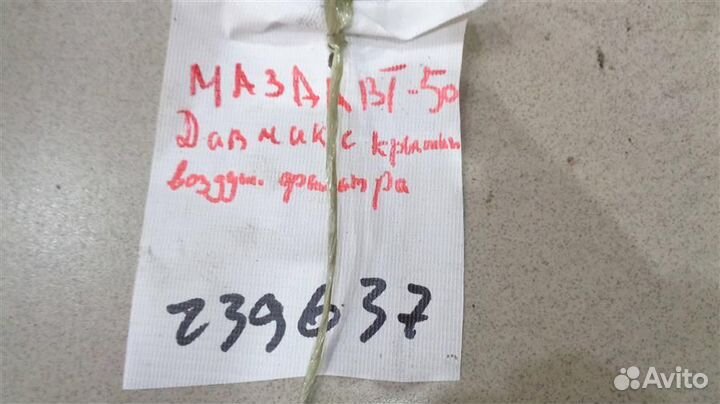 МАЗДА BT-50
Датчик с крышки
воздуш. фильтра
239637
Avito